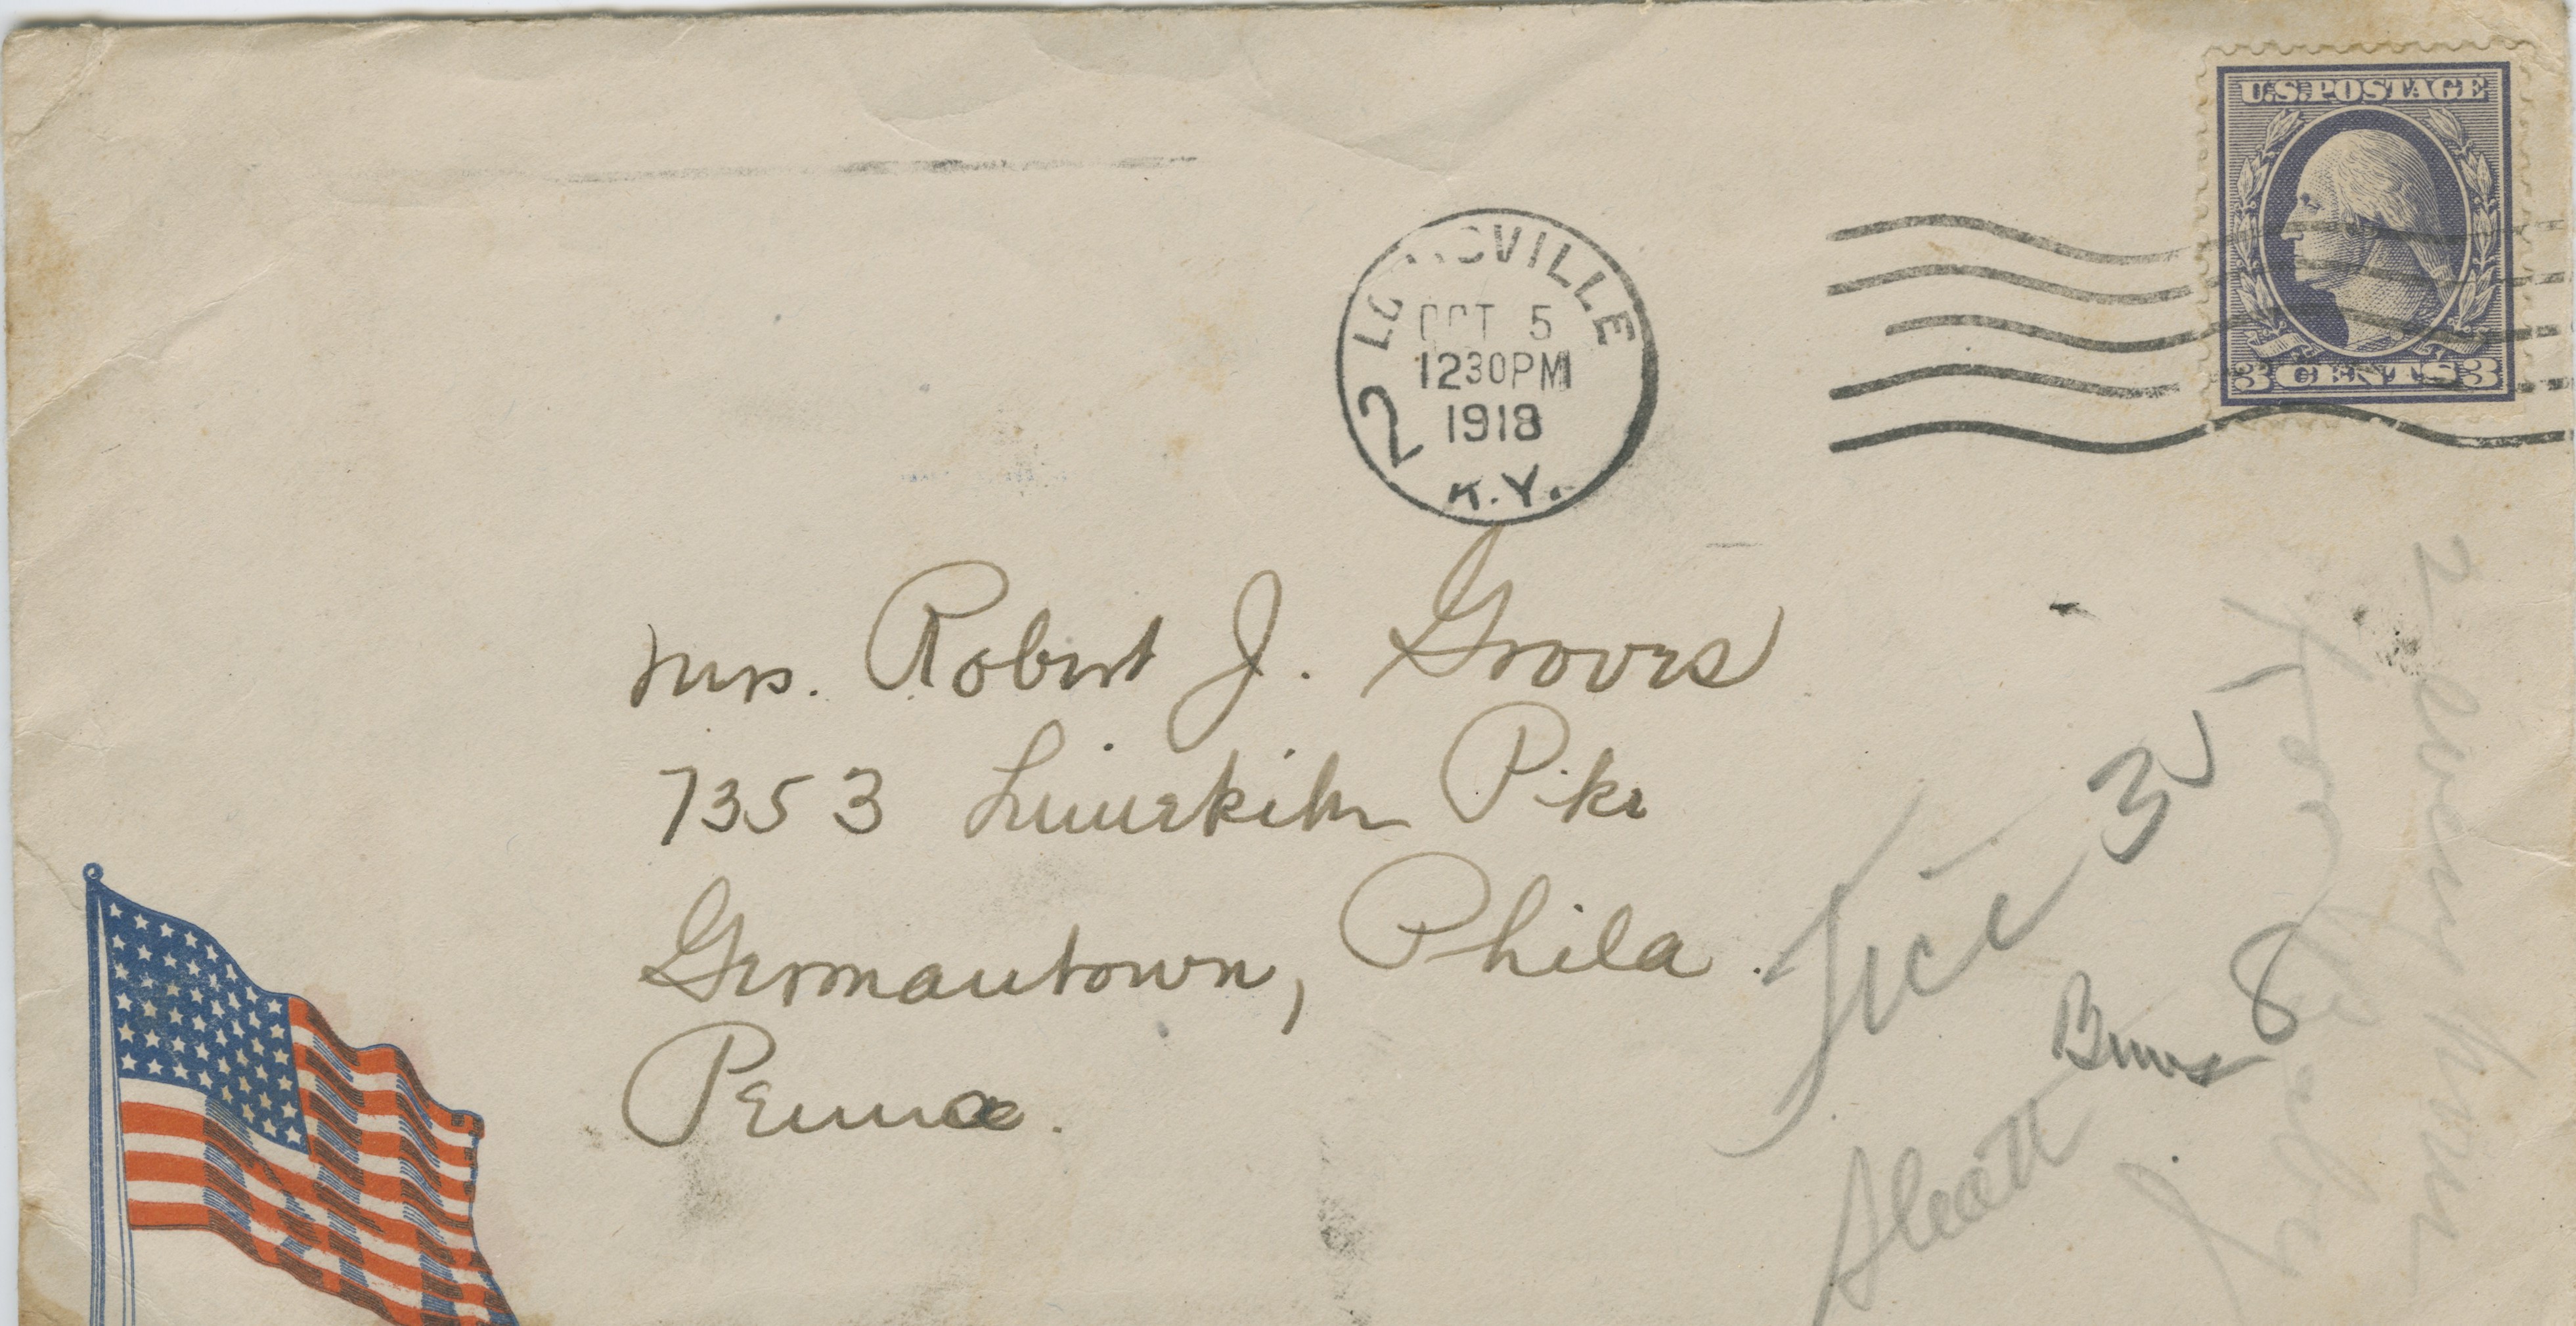 U.S. POSTAGE
3 CENTS 3
LOUISVILLE
OCT 5
1230PM
1918
2
K.Y.
Mrs. Robert J. Groves
7353 Limekiln Pike
Germantown, Phila.
Penna.
3
8